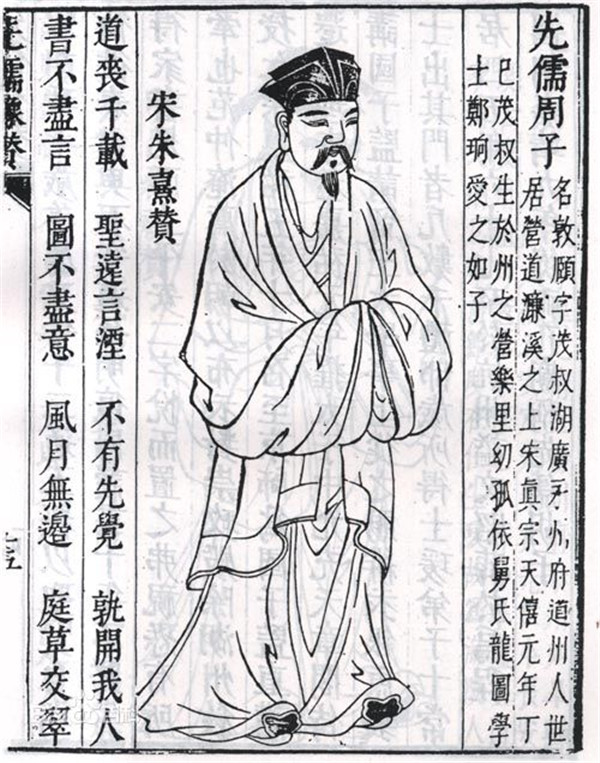 先儒周子
名敦頤字茂叔湖廣永州府道州人世
居營道濂溪之上宋眞宗天僖元年丁
巳茂叔生於州之營樂里幼孤依舅氏龍圖學
士鄭珦愛之如子
宋朱熹贊
道喪千載 聖遠言湮 不有先覺 孰開我人
書不盡言 圖不盡意 風月無邊 庭草交翠
先儒像贊